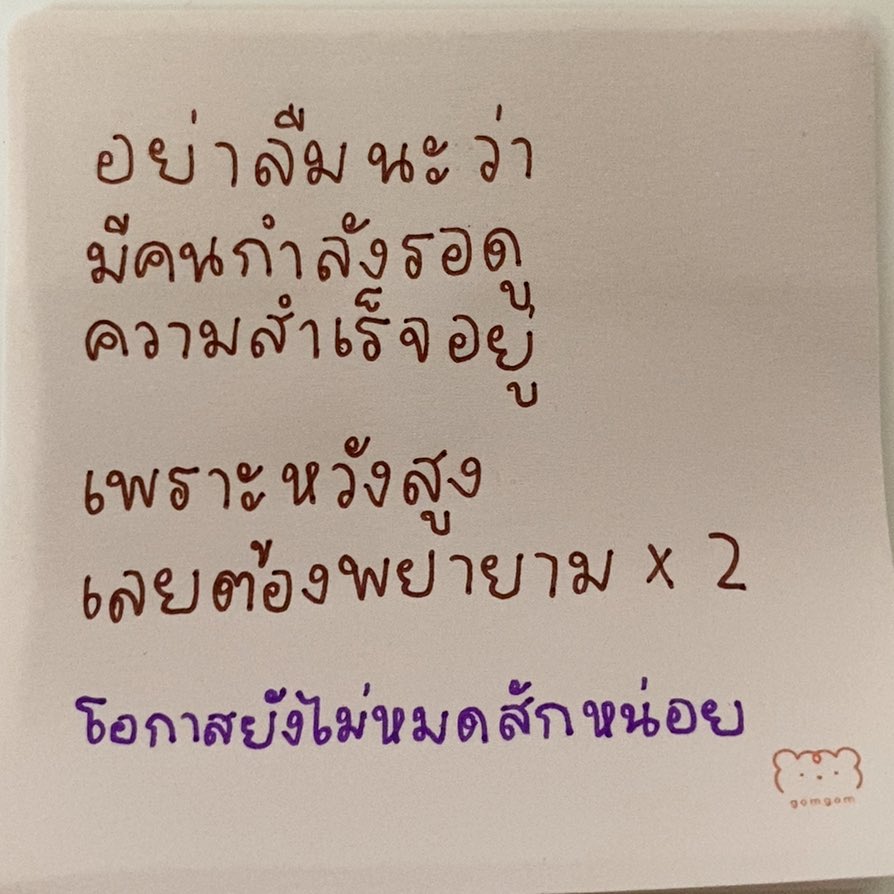 อย่าลืมนะว่า
มีคนกำลังรอดู
ความสำเร็จอยู่
เพราะหวังสูง
เลยต้องพยายาม x 2
โอกาสยังไม่หมดสักหน่อย
gomgom